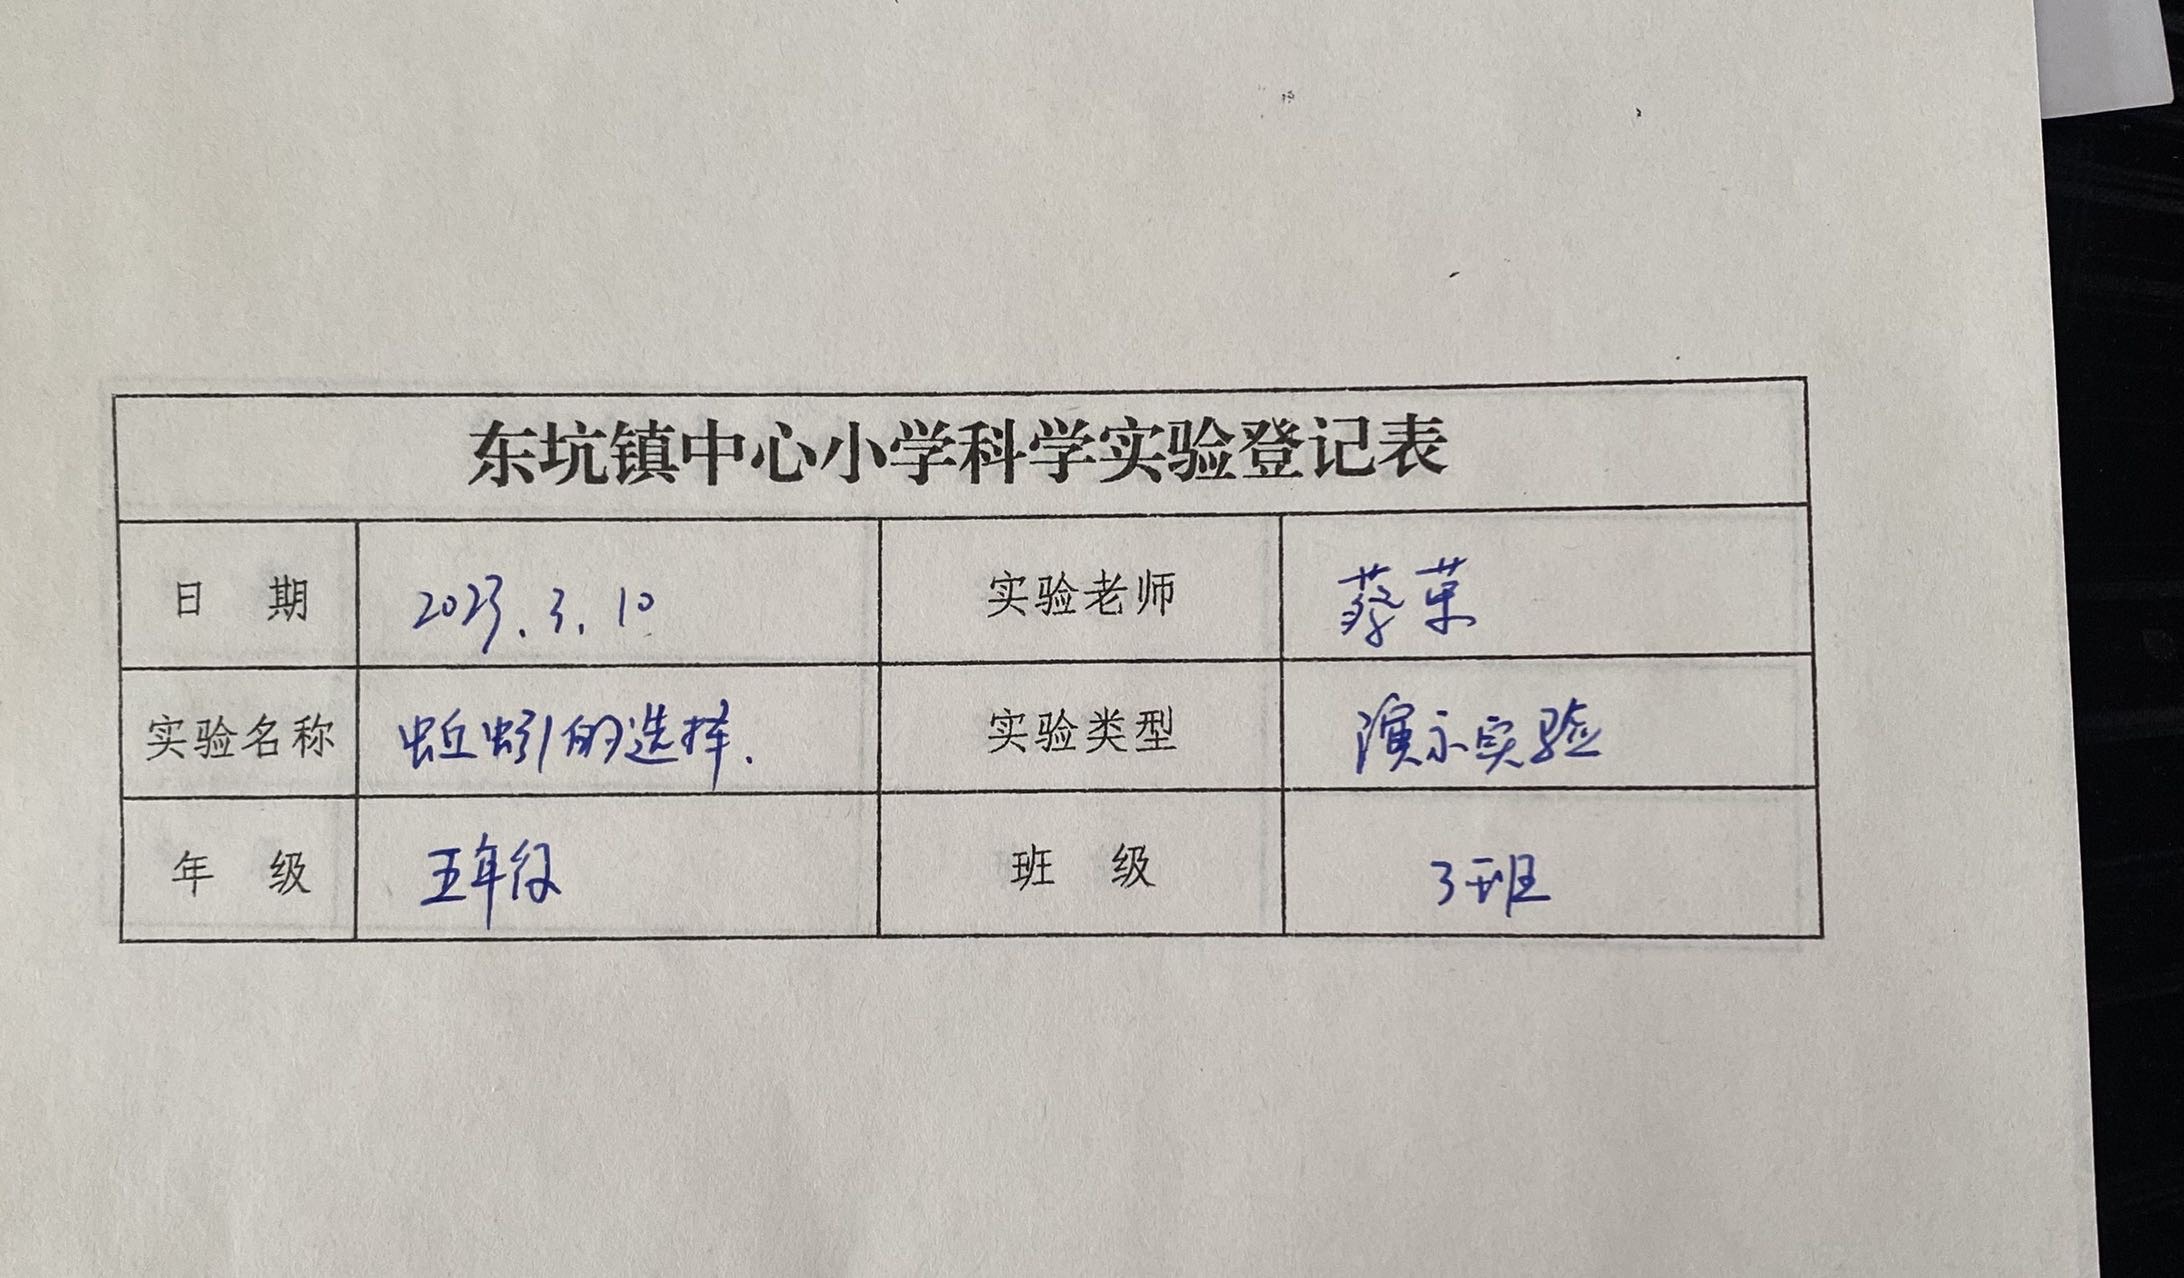 东坑镇中心小学科学实验登记表
日 期 2023.3.10 实验老师 蔡荣
实验名称 蚯蚓的选择. 实验类型 演示实验
年 级 五年级 班 级 3班